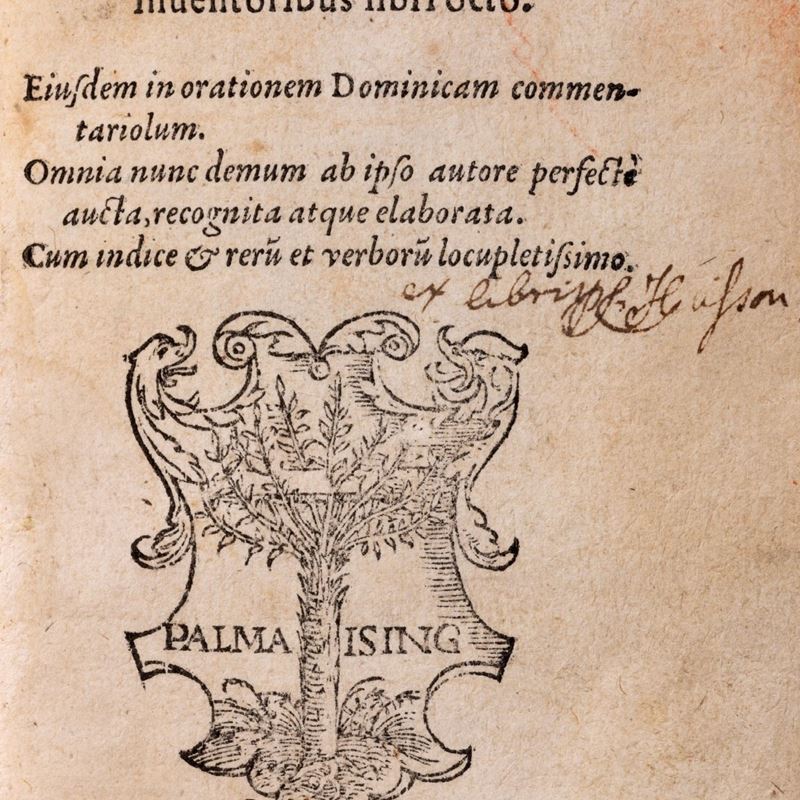 inuentoribus libri octo.
Eiuſdem in orationem Dominicam commen-
tariolum.
Omnia nunc demum ab ipſo autore perfectè
aucta, recognita atque elaborata.
Cum indice & rerũ et verborũ locupletiſsimo.
ex libris
PALMA ISING